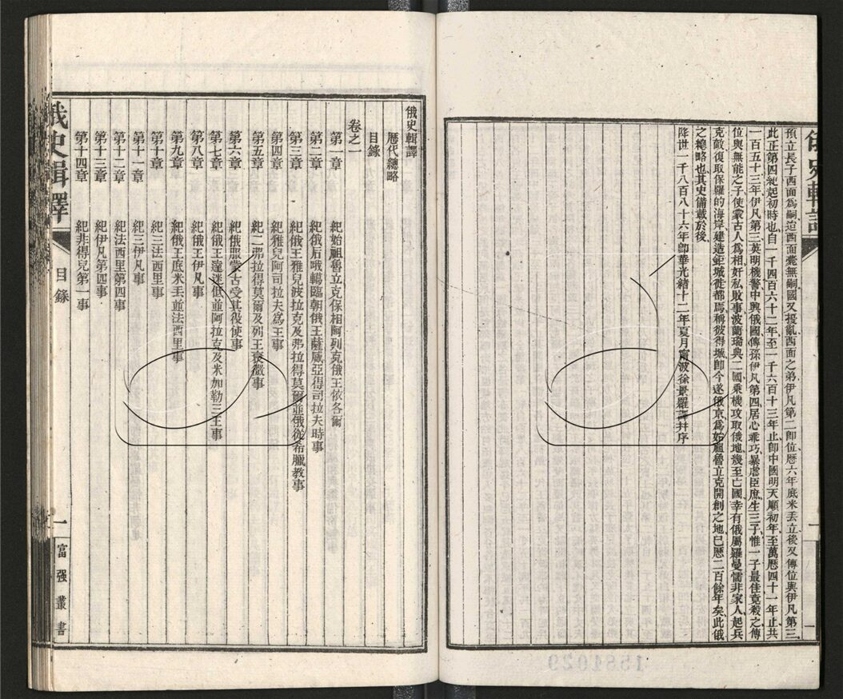 預立長子西面爲嗣迨西面薨無嗣國又擾亂西面之弟伊凡第二卽位歷六年底米丟立後又傳位與伊凡第三
此正第四紀起初時也自一千四百六十二年至一千六百十三年止卽中國明天順初年至萬歷四十一年止共
一百五十三年伊凡第三英明機警中興俄國傳孫伊凡第四居心乖巧暴虐臣庶生三子惟一子最佳竟殺之傳
位與無能之子使蒙古人爲相奸私敗事波蘭瑞典二國乘機攻取俄地幾至亡國幸有俄屬羅曼儒非家人起兵
克敵復取保羅的海岸建造鉅城徙都焉稱彼得城卽今遂俄京爲始祖魯立克開創之地已歷二百餘年矣此俄
之總略也其史備載於後
降世一千八百八十六年卽華光緒十二年夏月甯波徐景羅譯幷序
俄史輯譯
歷代總略
目錄
卷之一
第一章 紀始祖魯立克保相阿列克俄王依各爾
第二章 紀俄后哦轄臨朝俄王薩威亞得司拉夫時事
第三章 紀俄王雅兒波拉克及弗拉得莫爾並俄從希臘敎事
第四章 紀雅兒阿司拉夫爲王事
第五章 紀二那拉得莫爾及列王衰微事
第六章 紀俄服蒙古受其役使事
第七章 紀俄王達迷低並阿拉克及米加勒三王事
第八章 紀俄王伊凡事
第九章 紀俄王底米丟並法西里事
第十章 紀三法西里事
第十一章 紀三伊凡事
第十二章 紀法西里第四事
第十三章 紀伊凡第四事
第十四章 紀非得兒第一事
俄史輯譯
目錄
一
富強叢書